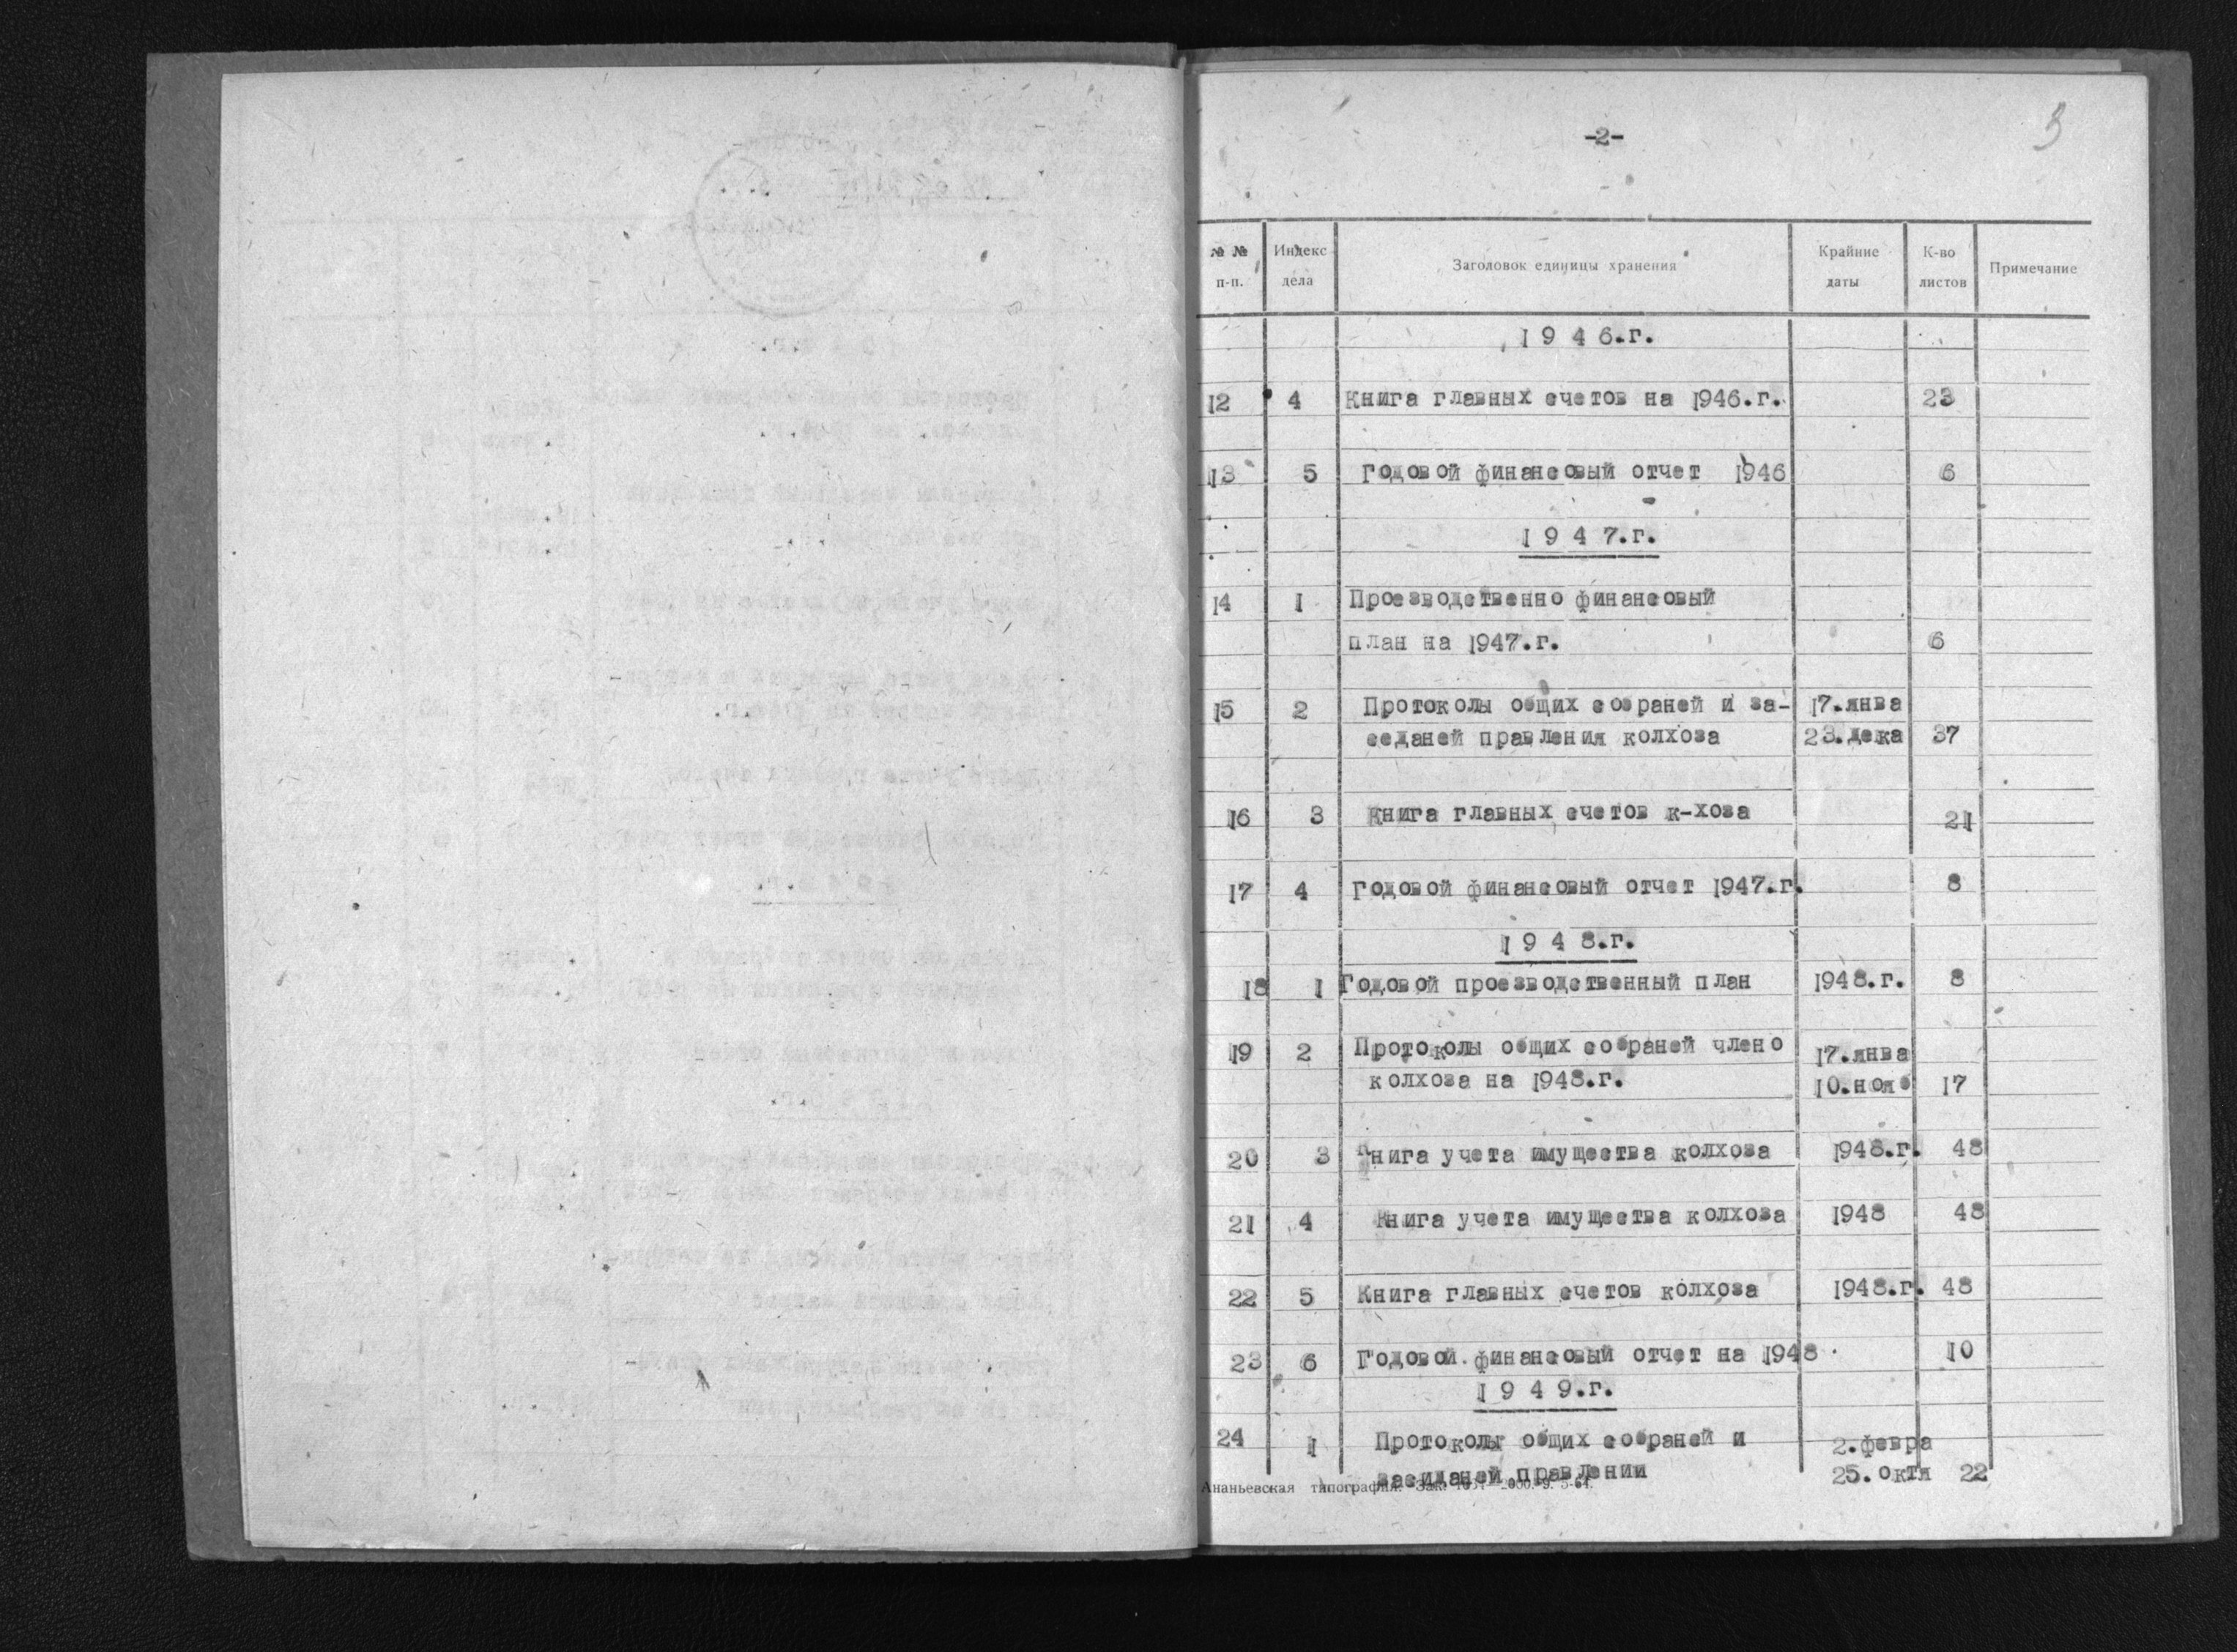 -2-
3
№ № п-п. Индекс дела Заголовок единицы хранения Крайние даты К-во листов Примечание
1 9 4 6.г.
12 4 Книга главных счетов на 1946.г. 23
13 5 Годовой финансовый отчет 1946 6
1 9 4 7.г.
14 1 Проезводственно финансовый
план на 1947.г. 6
15 2 Протоколы общих собраней и за- 17.янва
седаней правления колхоза 23.дека 37
16 3 Книга главных счетов к-хоза 21
17 4 Годовой финансовый отчет 1947.г. 8
1 9 4 8.г.
18 1 Годовой проезводственный план 1948.г. 8
19 2 Протоколы общих собраней члено 17.янва
колхоза на 1948.г. 10.нояб 17
20 3 Книга учета имущества колхоза 1948.г. 48
21 4 Книга учета имущества колхоза 1948 48
22 5 Книга главных счетов колхоза 1948.г. 48
23 6 Годовой финансовый отчет на 1948 10
1 9 4 9.г.
24 1 Протоколы общих собраней и 2.февра
засиданей правлении 25.октя 22
Ананьевская типография.